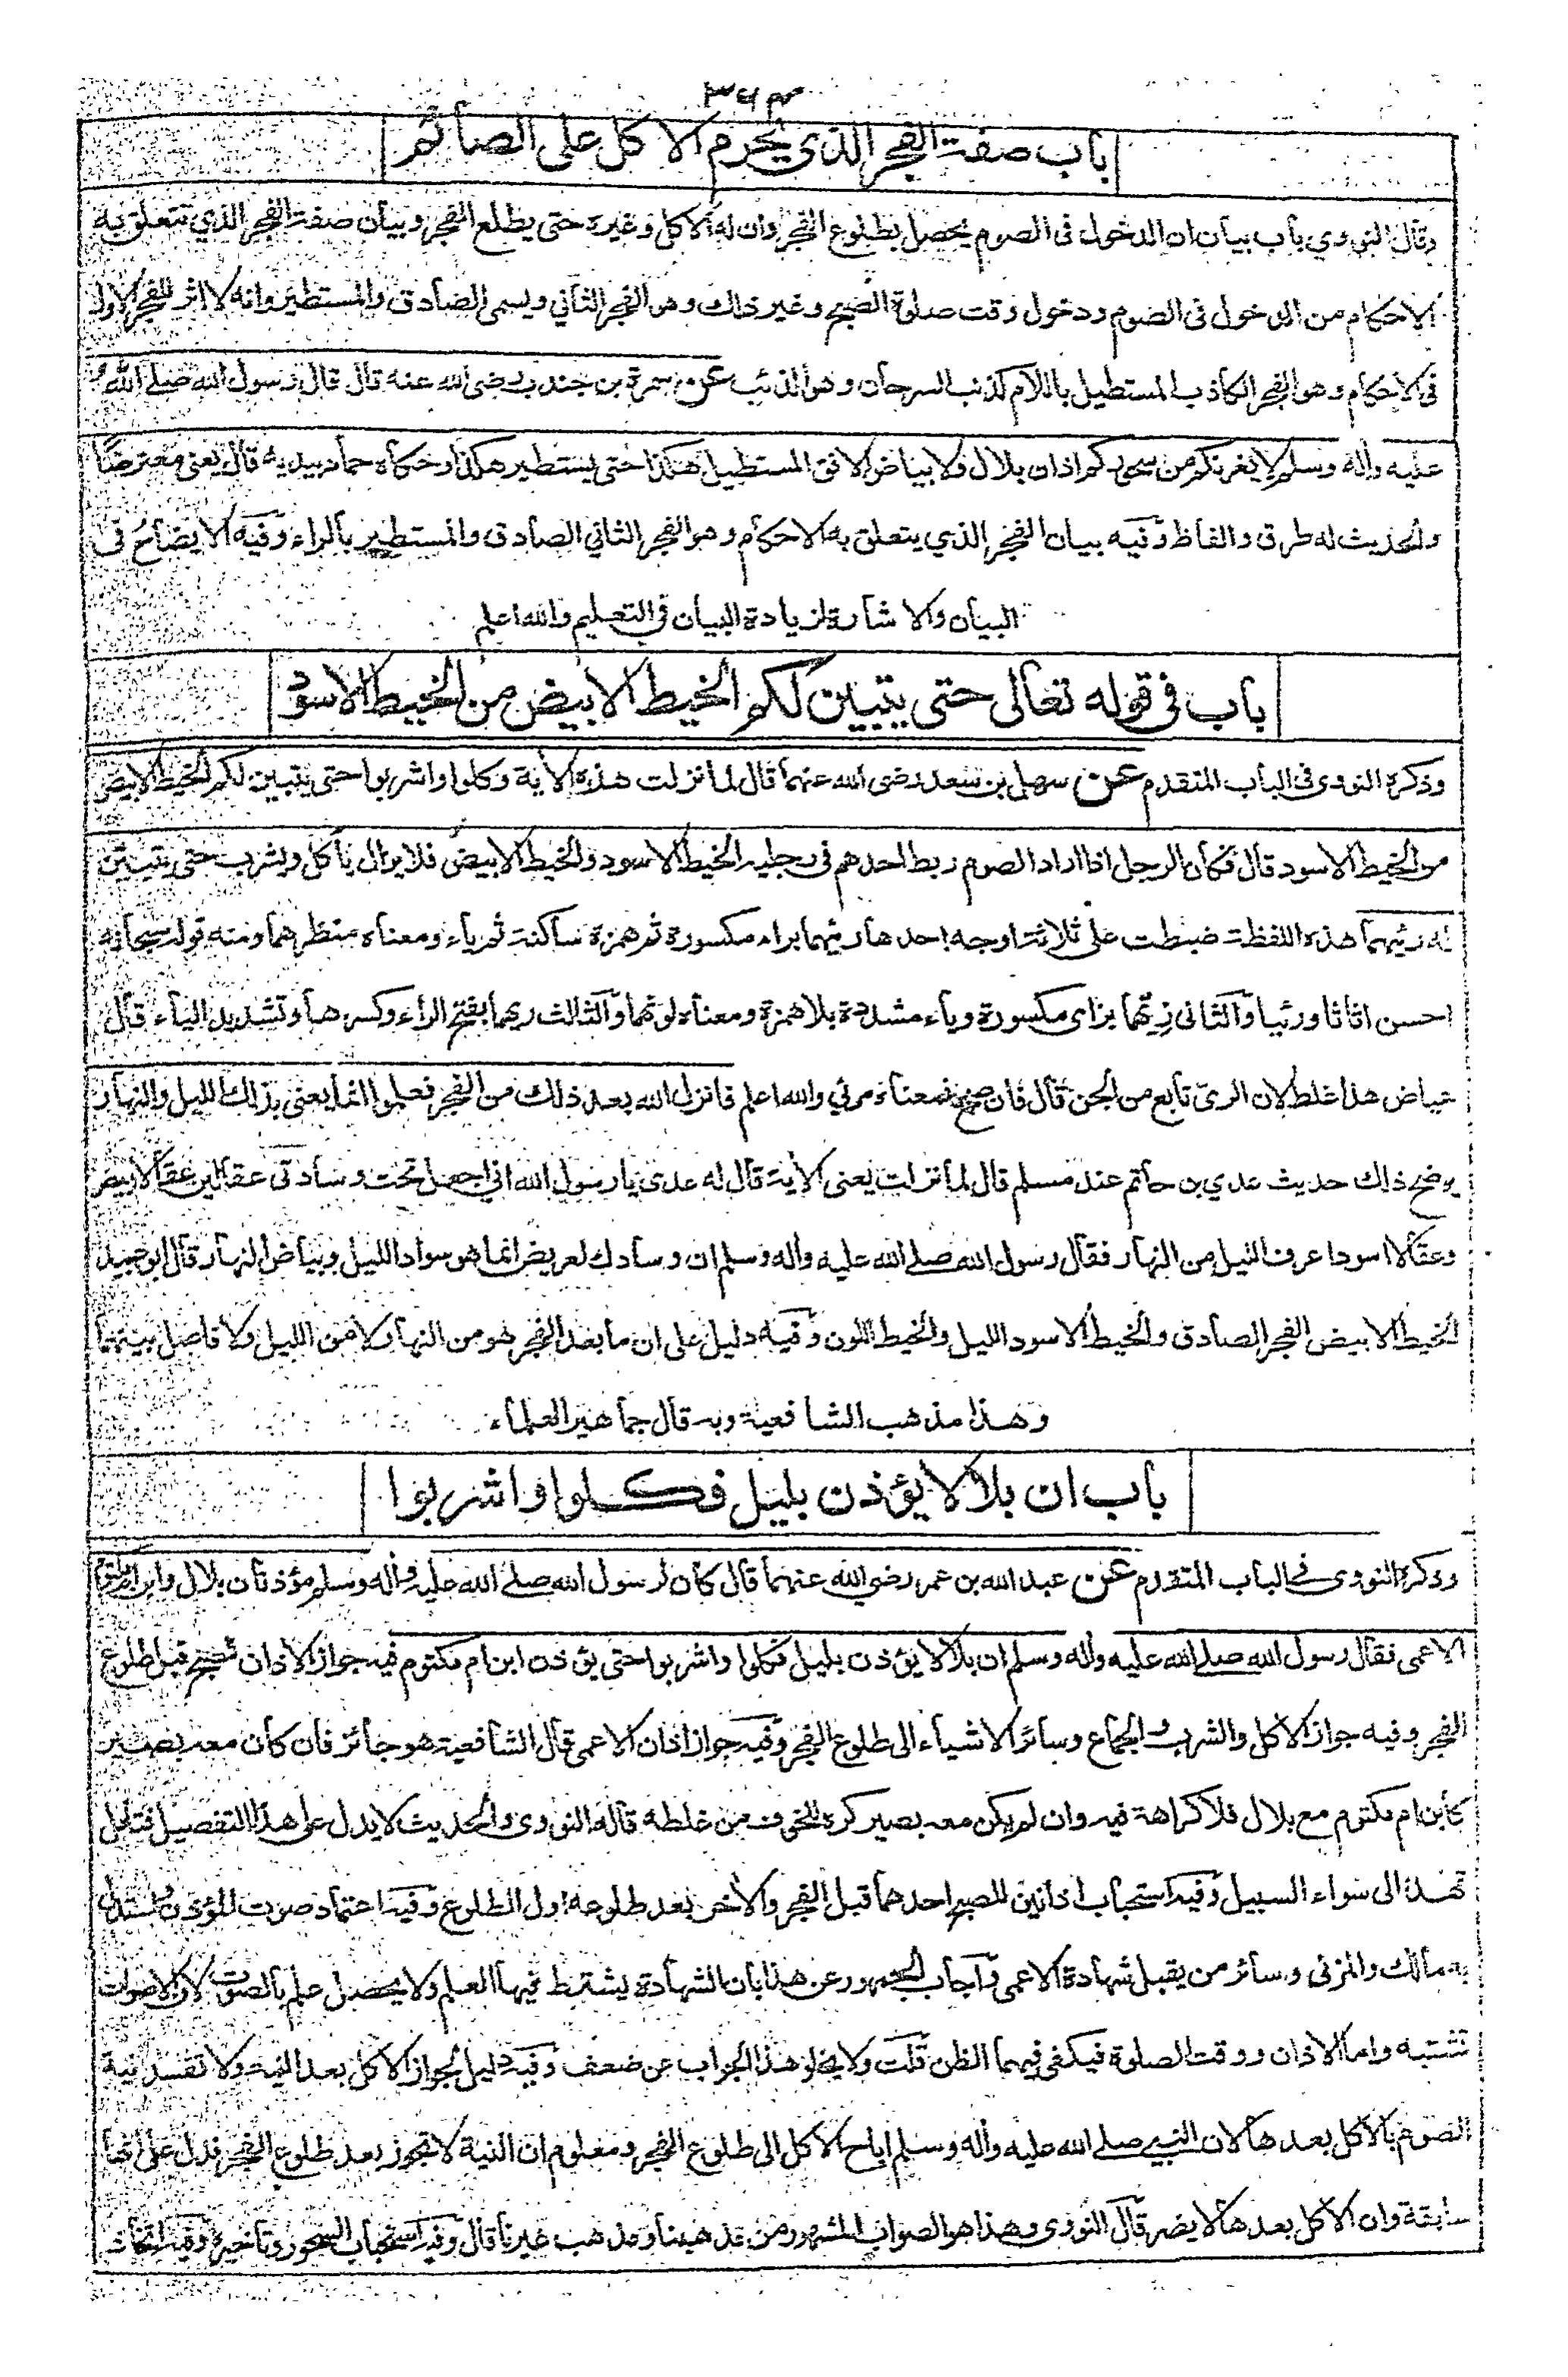 ٣٦٤
باب صفة الفجر الذي يحرم الاكل على الصائم
وقال النووي باب بيان ان الدخول في الصوم يحصل بطلوع الفجر وان له الاكل وغيره حتى يطلع الفجر وبيان صفة الفجر الذي تتعلق به
الاحكام من الدخول في الصوم ودخول وقت صلوة الصبح وغير ذلك وهو الفجر الثاني ويسمى الصادق والمستطير وانه لا اثر للفجر الاول
في الاحكام وهو الفجر الكاذب المستطيل باللام كذنب السرحان وهو الذئب عن سمرة بن جندب رضى الله عنه قال قال رسول الله صلے الله
عليه واله وسلم لا يغرنكم من سحوركم اذان بلال ولا بياض الافق المستطيل هكذا حتى يستطير هكذا وحكاه حماد بيديه قال يعنى معترضا
والحديث له طرق والفاظ وفيه بيان الفجر الذي يتعلق به الاحكام وهو الفجر الثاني الصادق والمستطير بالراء وفيه الايضاح في
البيان والاشارة لزيادة البيان في التعليم والله اعلم
باب في قوله تعالى حتى يتبين لكم الخيط الابيض من الخيط الاسود
وذكره النووى في الباب المتقدم عن سهل بن سعد رضى الله عنهما قال لما نزلت هذه الأية وكلوا واشربوا حتى يتبين لكم الخيط الابيض
من الخيط الاسود قال فكان الرجل اذا اراد الصوم ربط احدهم في رجليه الخيط الاسود والخيط الابيض فلا يزال يأكل ويشرب حتى يتبين
له رئيهما هذه اللفظة ضبطت على ثلاثة اوجه احدها رئيهما براء مكسورة ثم همزة ساكنة ثم ياء ومعناه منظرهما ومنه قوله سبحانه
احسن اثاثا ورئيا والثانى زيّهما بزاى مكسورة وياء مشددة بلا همزة ومعناه لونهما والثالث ريهما بفتح الراء وكسرها وتشديد الياء قال
عياض هذا غلط لان الرىّ تابع من الجن قال فان صح فمعناه مرئي والله اعلم فانزل الله بعد ذلك من الفجر فعلموا انما يعنى بذلك الليل والنهار
يوضح ذلك حديث عدي بن حاتم عند مسلم قال لما نزلت يعنى الأية قال له عدى يا رسول الله اني اجعل تحت وسادتى عقالين عقالا ابيض
وعقالا اسود اعرف الليل من النهار فقال رسول الله صلے الله عليه واله وسلم ان وسادك لعريض انما هو سواد الليل وبياض النهار قال ابو عبيد
الخيط الابيض الفجر الصادق والخيط الاسود الليل والخيط اللون وفيه دليل على ان ما بعد الفجر هو من النهار لا من الليل ولا فاصل بينهما
وهذا مذهب الشافعية وبه قال جماهير العلماء
باب ان بلالا يؤذن بليل فكلوا واشربوا
وذكره النووى في الباب المتقدم عن عبد الله بن عمر رضي الله عنهما قال كان لرسول الله صلے الله عليه واله وسلم مؤذنان بلال وابن ام مكتوم
الاعمى فقال رسول الله صلے الله عليه واله وسلم ان بلالا يؤذن بليل فكلوا واشربوا حتى يؤذن ابن ام مكتوم فيه جواز الاذان للصبح قبل طلوع
الفجر وفيه جواز الاكل والشرب والجماع وسائر الاشياء الى طلوع الفجر وفيه جواز اذان الاعمى قال الشافعية هو جائز فان كان معه بصير
كابن ام مكتوم مع بلال فلا كراهة فيه وان لم يكن معه بصير كره للخوف من غلطه قاله النووى والحديث لا يدل على هذا التفصيل فتأمل
تهتد الى سواء السبيل وفيه استحباب اذانين للصبح احدهما قبل الفجر والأخر بعد طلوعه اول الطلوع وفيه اعتماد صوت المؤذن واستدل
به مالك والمزنى وسائر من يقبل شهادة الاعمى واجاب الجمهور عن هذا بان الشهادة يشترط فيها العلم ولا يحصل علم بالصوت لان الاصوات
تشتبه واما الاذان ووقت الصلوة فيكفى فيهما الظن قلت ولا يخلو هذا الجواب عن ضعف وفيه دليل لجواز الاكل بعد النية ولا تفسد نية
الصوم بالاكل بعدها لان النبي صلے الله عليه واله وسلم اباح الاكل الى طلوع الفجر ومعلوم ان النية لا تجوز بعد طلوع الفجر فدل على انها
سابقة وان الاكل بعدها لا يضر قال النووى وهذا هو الصواب المشهور من مذهبنا ومذهب غيرنا قال وفيه استحباب السحور وتأخيره وفيه